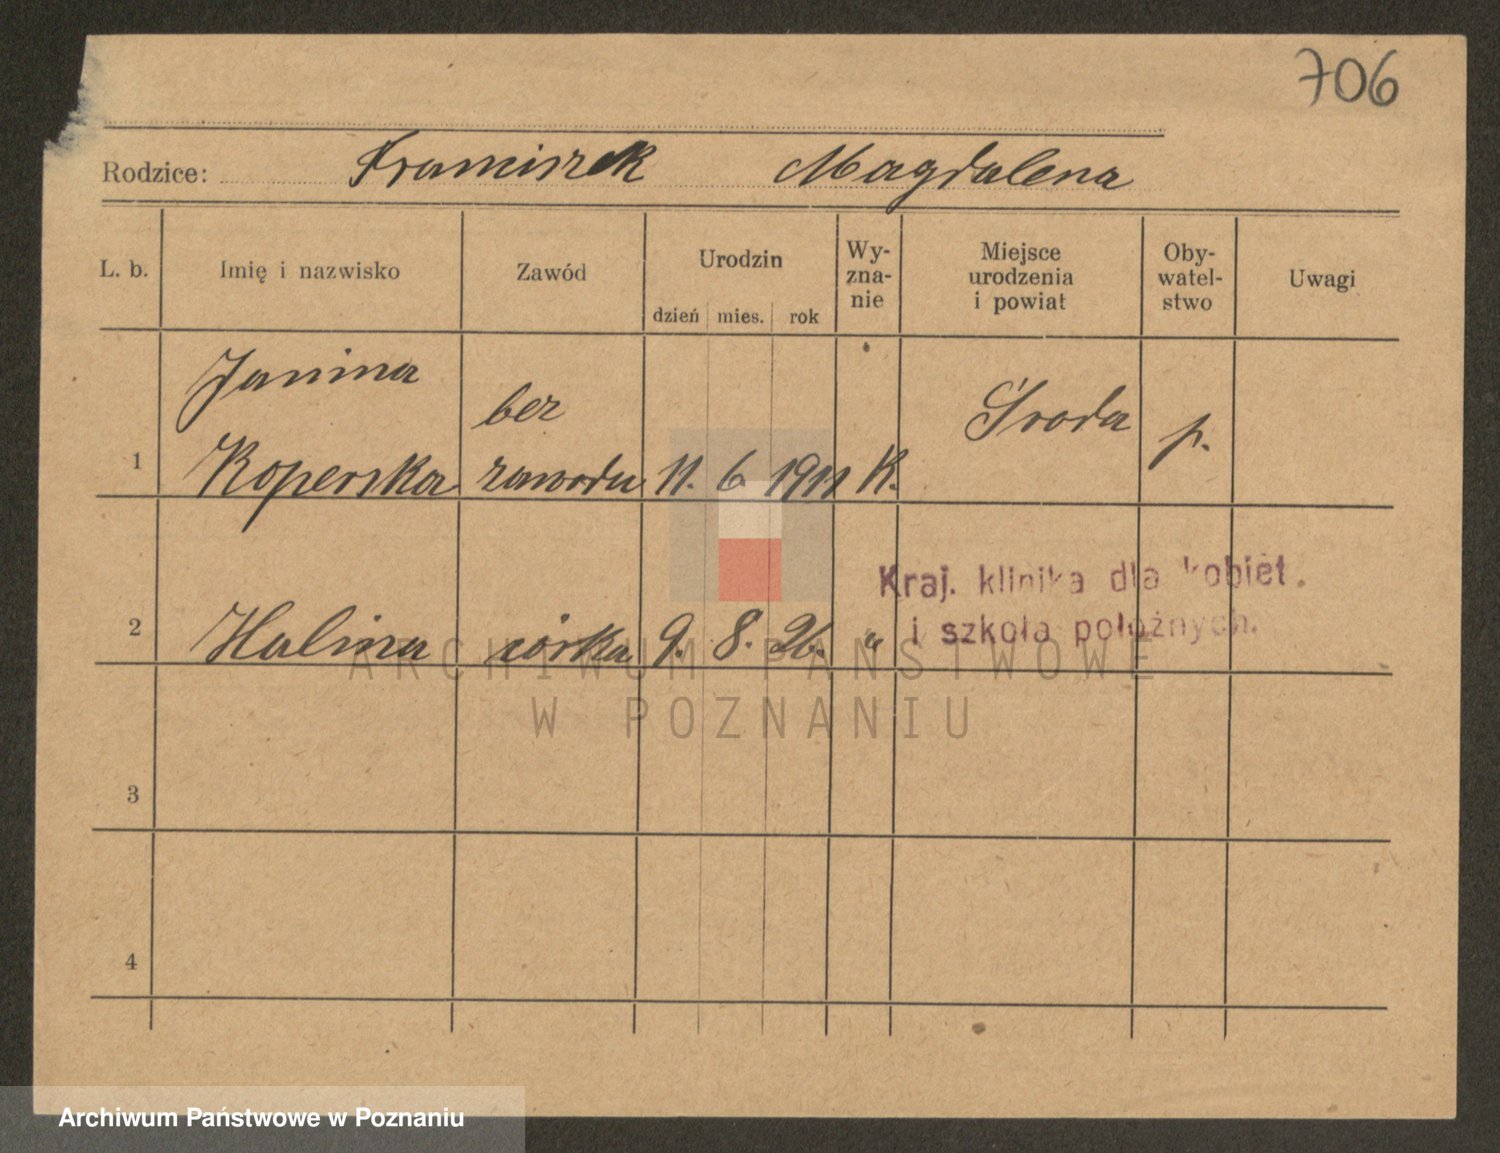 706
Rodzice: Franciszek Magdalena
L. b. Imię i nazwisko Zawód Urodzin dzień mies. rok Wy-zna-nie Miejsce urodzenia i powiat Oby-watel-stwo Uwagi
Janina bez Środa p.
1 Koperska zawodu 11. 6. 1911 K.
Kraj. klinika dla kobiet.
i szkoła położnych.
2 Halina córka 9. 8. 26. "
ARCHIWUM PAŃSTWOWE
W POZNANIU
3
4
Archiwum Państwowe w Poznaniu